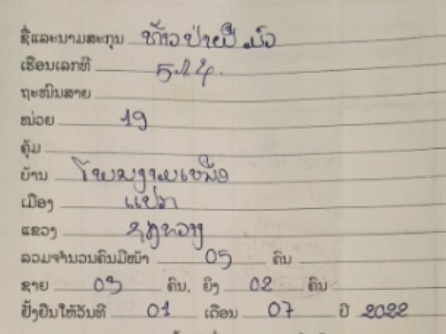 ຊື່ແລະນາມສະກຸນ ທ້າວ ປ່າເຢີ ມົວ
ເຮືອນເລກທີ
ຖະໜົນສາຍ
ໜ່ວຍ 19
ຄຸ້ມ
ບ້ານ ໂພນງາມເໜືອ
ເມືອງ ແປກ
ແຂວງ ຊຽງຂວາງ
ລວມຈຳນວນຄົນມີໜ້າ 05 ຄົນ
ຊາຍ 03 ຄົນ, ຍິງ 02 ຄົນ
ຢັ້ງຢືນໃຫ້ວັນທີ 01 ເດືອນ 07 ປີ 2022